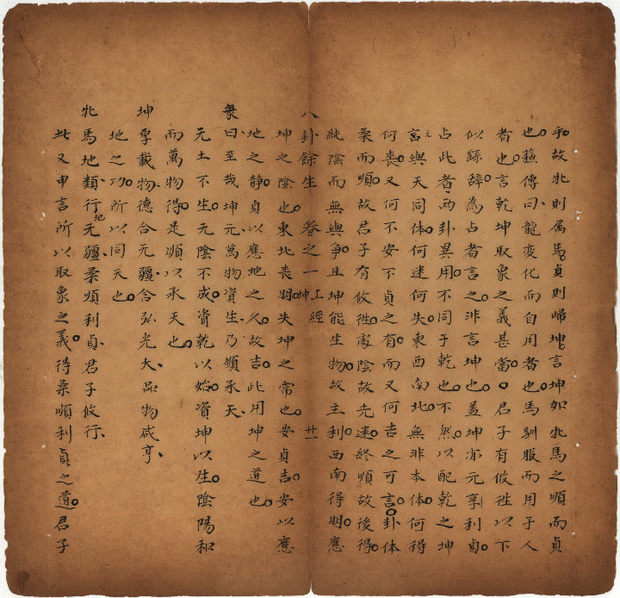 和故牝則屬馬貞則歸坤言坤如牝馬之順而貞
也孫傳曰龍變化而自用者也馬馴服而用于人
者也言乾坤取象之義甚當君子有攸徃以下
似繇辭為占者言之非言坤也蓋坤亦元亨利貞
占此者兩卦異用不同于乾也不然以配乾之坤
言元與天同體何迷何失東西南北無非本體何得
何喪又何不安不貞之有而又何吉之可言卦体
柔而順故君子有攸徃處陰故先迷終順故後得
純陰而無與爭且坤能生物故主利西南得朋應
八卦餘生 卷之一 上經 坤 廿一
坤之陰也東北喪朋失坤之常也安貞吉安以應
地之靜貞以應地之久故吉此用坤之道也
彖曰至哉坤元萬物資生乃順承天
元土不生元陰不成資乾以始資坤以生陰陽和
而萬物得是順以承天也
坤厚載物德合无疆含弘光大品物咸亨
地之功所以同天也
牝馬地類行地无疆柔順利貞君子攸行
此又申言所以取象之義得柔順利貞之道君子